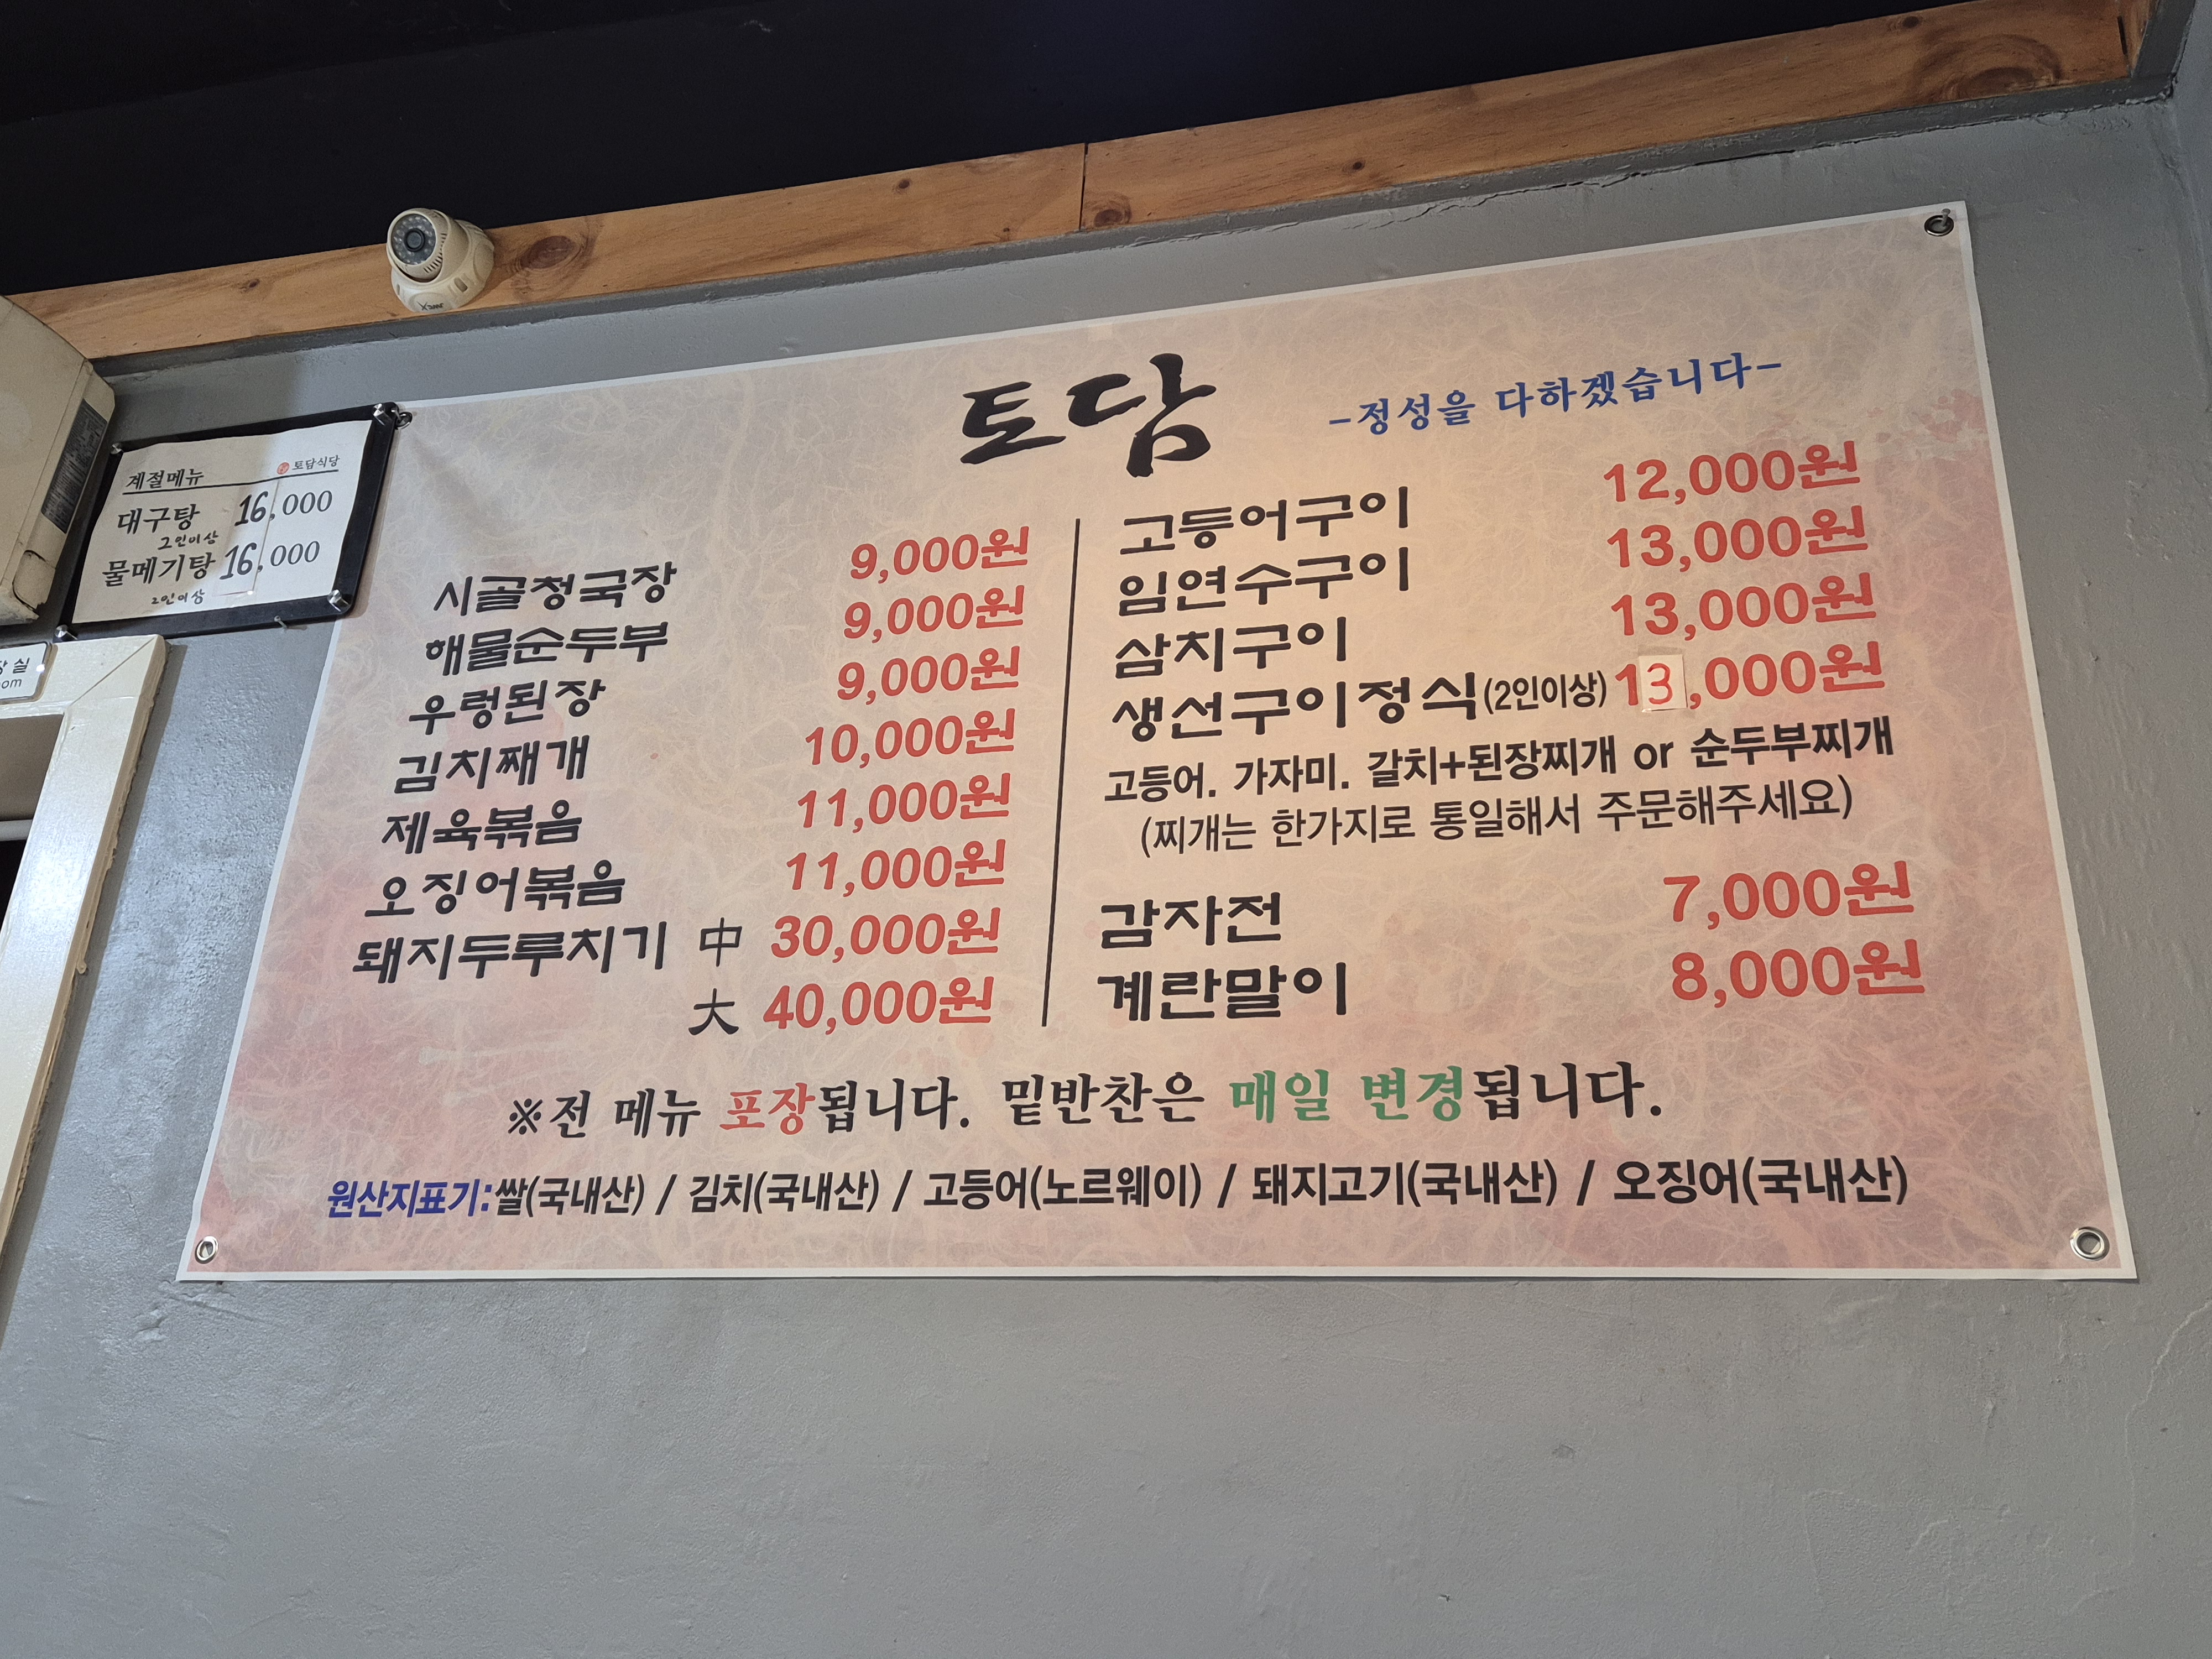 토담
-정성을 다하겠습니다-
시골청국장 9,000원
해물순두부 9,000원
우렁된장 9,000원
김치째개 10,000원
제육볶음 11,000원
오징어볶음 11,000원
돼지두루치기 中 30,000원
大 40,000원
고등어구이 12,000원
임연수구이 13,000원
삼치구이 13,000원
생선구이정식(2인이상) 13,000원
고등어. 가자미. 갈치+된장찌개 or 순두부찌개
(찌개는 한가지로 통일해서 주문해주세요)
감자전 7,000원
계란말이 8,000원
※전 메뉴 포장됩니다. 밑반찬은 매일 변경됩니다.
원산지표기:쌀(국내산) / 김치(국내산) / 고등어(노르웨이) / 돼지고기(국내산) / 오징어(국내산)
계절메뉴 토담식당
대구탕 16,000
2인이상
물메기탕 16,000
2인이상
실
om